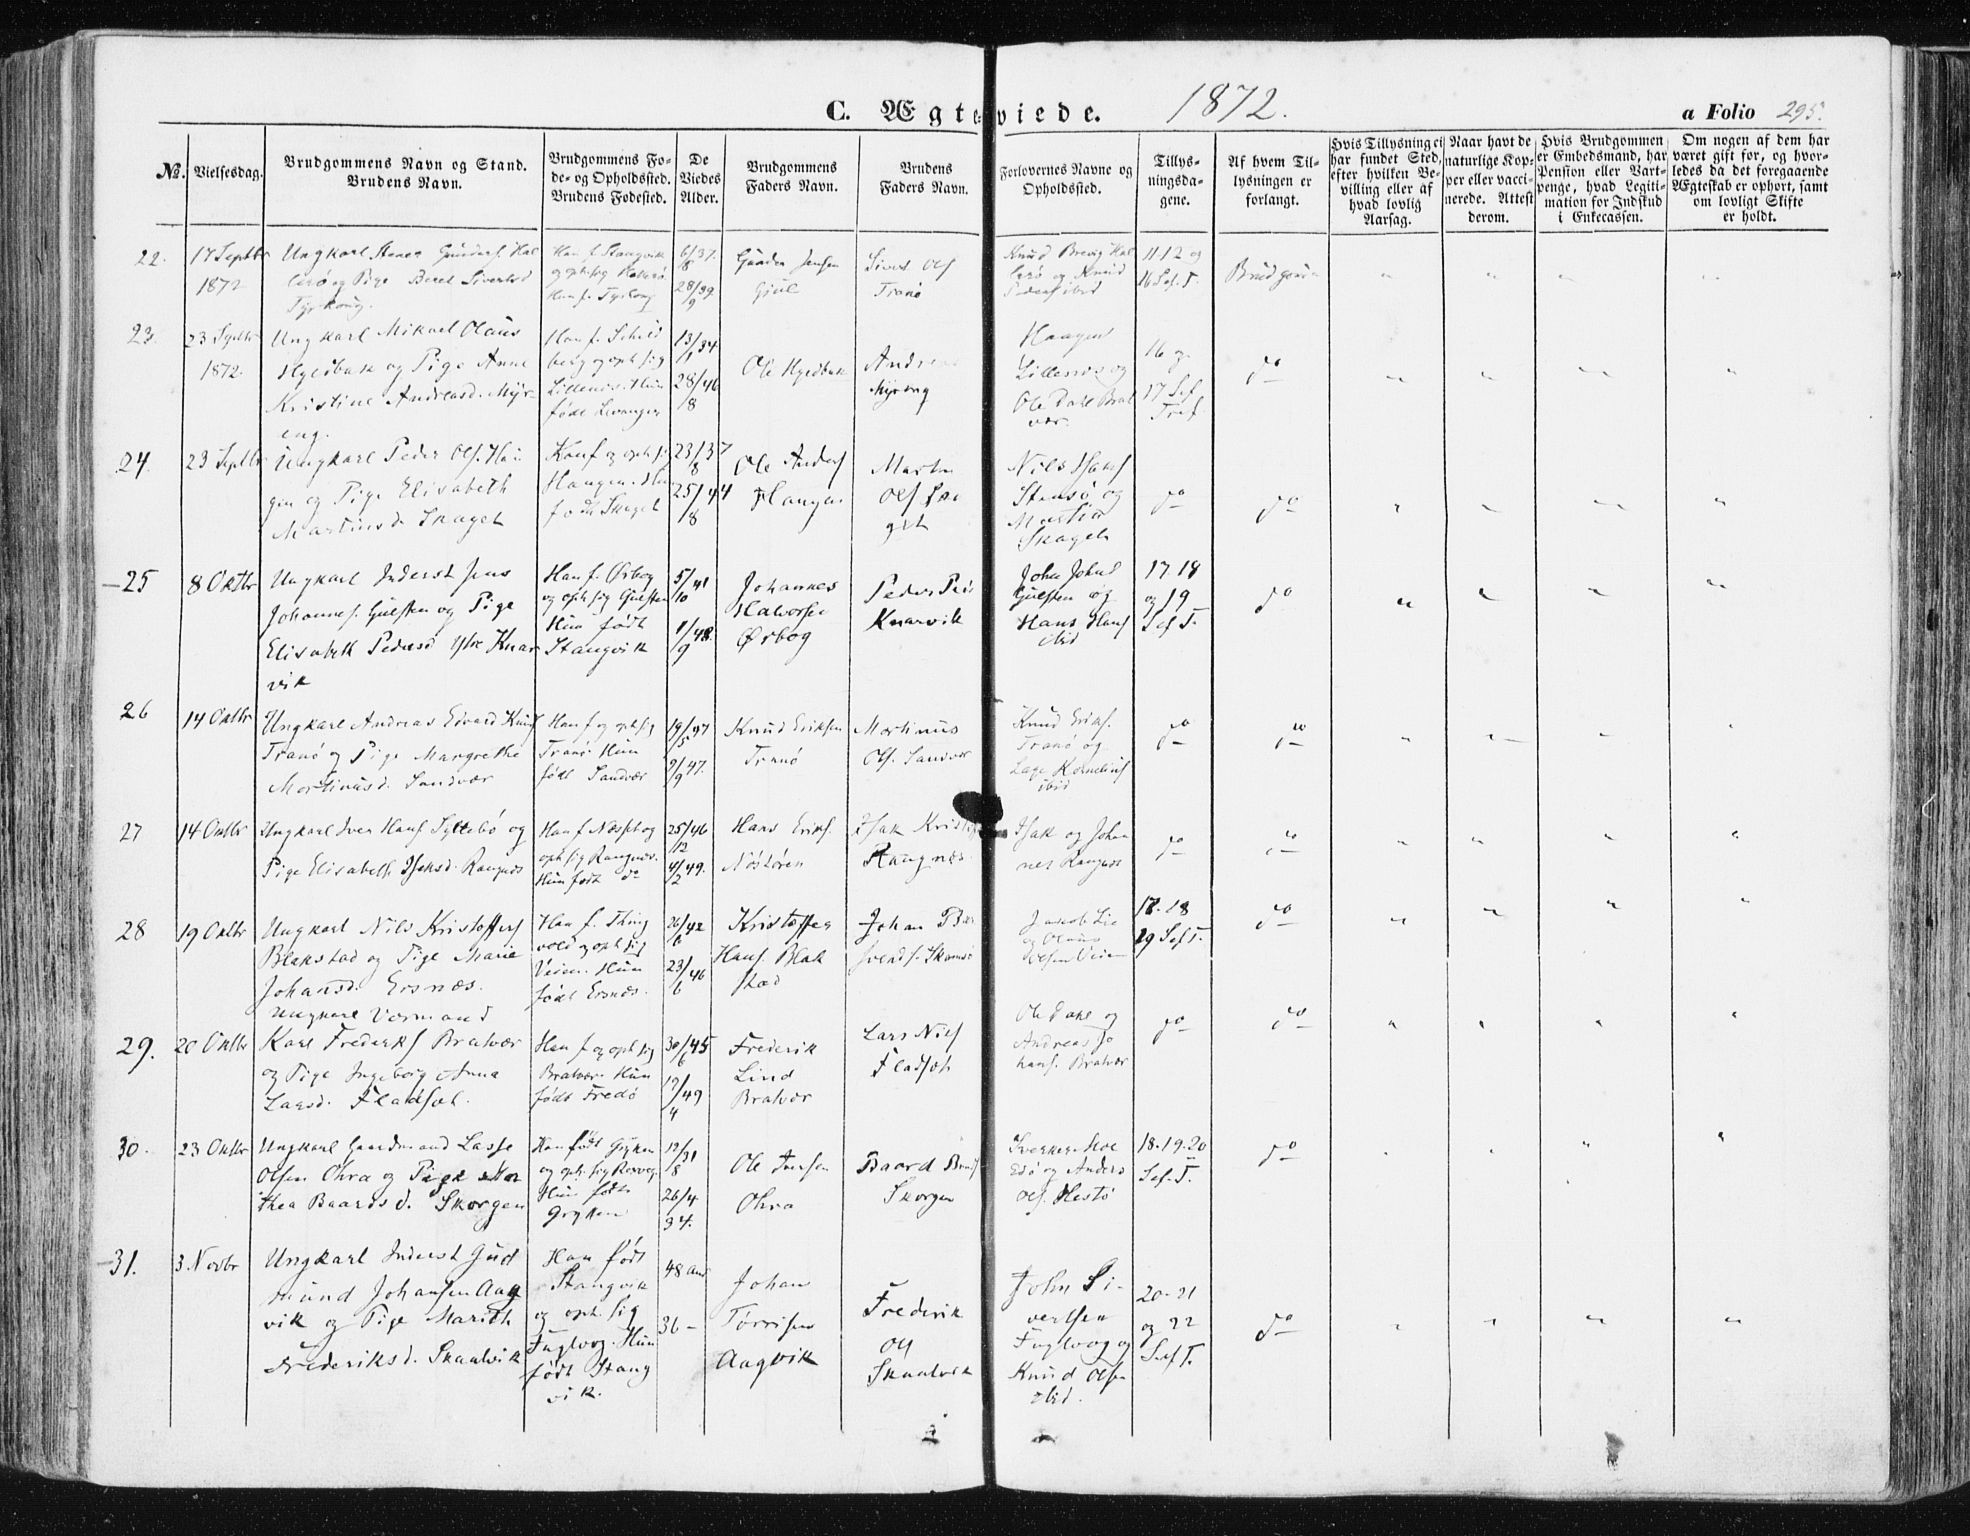 C. Ægteviede. 1872. a Folio 295.
№.
Vielsesdag.
Brudgommens Navn og Stand.
Brudens Navn.
Brudgommens Fo-
de- og Opholdssted.
Brudens Fødested.
De
Viedes
Alder.
Brudgommens
Faders Navn.
Brudens
Faders Navn.
Forlovernes Navne og
Opholdssted.
Tillys-
ningsda-
gene.
Af hvem Til-
lysningen er
forlangt.
Hvis Tillysning ei
har fundet Sted,
efter hvilken Be-
villing eller af
hvad lovlig
Aarsag.
Naar havt de
naturlige Kop-
per eller vacci-
nerede. Attest
derom.
Hvis Brudgommen
er Embedsmand, har
Pension eller Vart-
penge, hvad Legiti-
mation for Indskud
i Enkecassen.
Om nogen af dem har
været gift før, og hvor-
ledes da det foregaaende
Ægteskab er ophørt, samt
om lovligt Skifte
er holdt.
22.
17 Septbr
1872
Ungkarl
og Pige Beret Sivertsd
Han f. Stangvik
og oph. sig
Hun f.
6/8 37.
28/9 39.
Gunder Jensen
Gjul
Siver Ols
Tranø
Knud Brevig
og Knud
ibid
11 12 og
16 Sef. T.
23.
23 Septbr
1872.
Ungkarl Mikael Olaus
Hyldbak og Pige Anne
Kristine Andreasd. Myr-
eng.
Han f.
og oph sig
Hun
føde Levanger
13/ 34
28/8 46
Ole Hyldbak
Andreas
Myreng
Haagen
Lillenes og
Ole Dahl Brat
vær.
16 og
17 Sef
Tref
do
24.
23 Septbr
Ungkarl Peder Ols. Hau
gen og Pige Elisabeth
Martinsd. Skaget
Han f og oph sig
Haugen. Hun
født Skaget
23/8 37
25/8 44
Ole Anders
Haugen
Martin
Ols Ska
get
Nils Hans
Stensø og
Martin
Skaget
do
do
25
8 Oktbr
Ungkarl Inderst Jens
Johannes. Gulsten og Pige
Elisabeth Pedersd Ytre Knar
vik
Han f. Ørbog
og oph sig Gulsten
Hun født
Stangvik
5/10 41
1/9 48.
Johannes
Halvorsen
Ørbog
Peder
Knarvik
John Johns
Gulsten og
Hans Hans
ibid
17. 18
og 19
Sef T.
do
26
14 Oktbr
Ungkarl Andreas Edvard Knuds
Tranø og Pige Margrethe
Martinusd. Sandvær
Han f og oph sig
Tranø. Hun
født Sandvær
19/5 47
9/9 47.
Knud Eriksen
Tranø
Martinus
Ols. Sandvær
Knud Eriks.
Tranø og
Lage Kornelius
ibid
do
do
27
14 Oktbr
Ungkarl Iver Hans Syltebø og
Pige Elisabeth Isaksd. Rangnæs
Han f. Næsset og
oph sig Rangnæs.
Hun født do
25/12 46
4/2 49.
Hans Eriks.
Nøstøren
Isak Kristof
Rangnæs.
Isak og Johan
nes Rangnæs
do
do
28
19 Oktbr
Ungkarl Nils Kristoffers
Blakstad og Pige Marie
Johansd. Ersnæs.
Han f. Thing
vold og oph sig
Veien. Hun
født Ersnæs.
26/6 42
23/6 46
Kristoffer
Hans Blak
stad
Johan
Svends.
Jacob Lie
og Olaus
Olsen Veien
17. 18
19 Sef T.
do
29.
20 Oktbr
Ungkarl Værmand
Karl Frederiks Bratvær
og Pige Ingeborg Anna
Larsd. Fladsæt.
Han f og oph sig
Bratvær. Hun
født Fredø
30/6 45
17/4 49
Frederik
Lind
Bratvær
Lars Nils
Fladsæt
Ole Dahl og
Andreas Jo
hans. Bratvær
do
do
30.
23 Oktbr
Ungkarl Gaardmand Lasse
Olsen Ohra og Pige Mar
thea Baardsd. Skorgen
Han født Gryten
og oph sig
Hun født
Gryten
19/8 31
26/4
34.
Ole Jensen
Ohra
Baard
Skorgen
Sverker Moe
Edø og Anders
Ols. Hestø
18. 19. 20
Sef. T.
do
31.
3 Novbr
Ungkarl Inderst Gud
mund Johansen Aag
vik og Pige Marith
Frederiksd. Skaalvik
Han født
Stangvik
og oph. sig
Fuglvog. Hun
født Stang
vik.
48 aar
36 –
Johan
Torrisen
Aagvik
Frederik
Ols
Skaalvik
John Si-
vertsen
Fuglvog og
Knud Olsen
ibid.
20-21
og 22
Sef T.
do